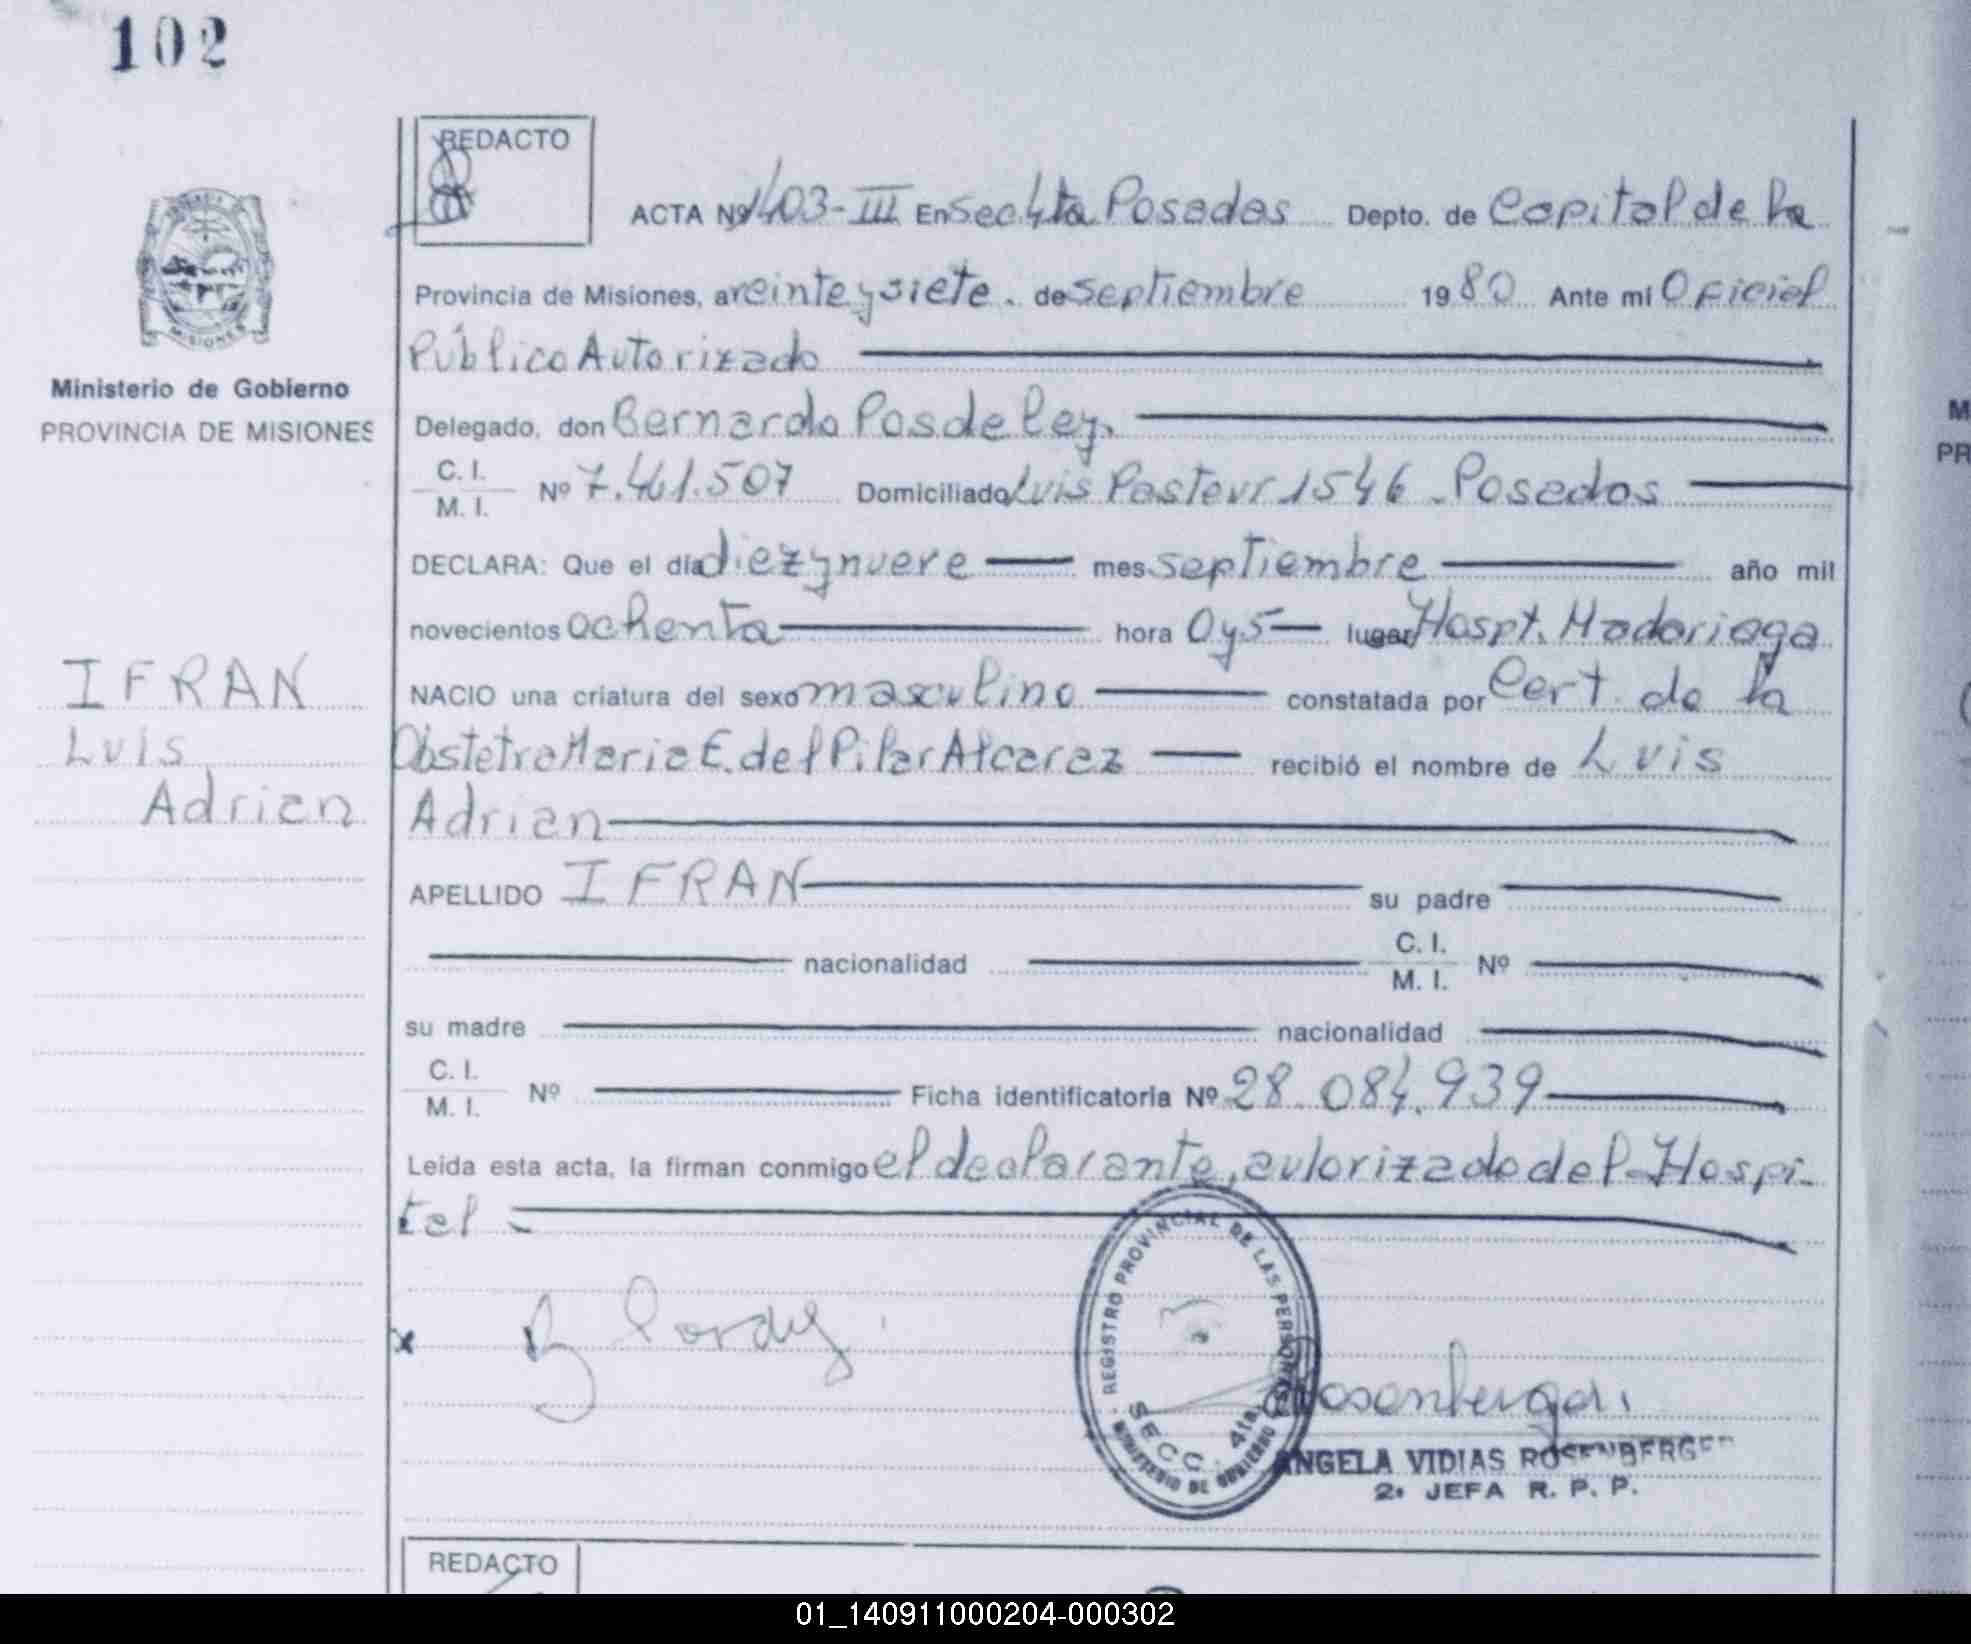 102
REDACTO
ACTA Nº 1403-III En Sec 4ta Posadas Depto. de Capital de la
Provincia de Misiones, a veinte y siete. de septiembre 1980 Ante mi Oficial
Público Autorizado
Ministerio de Gobierno
PROVINCIA DE MISIONES
Delegado, don Bernardo Posdeley.
C. I.
M. I. Nº 7.461.507 Domiciliado Luis Pasteur 1546 - Posadas
DECLARA: Que el día diez y nueve mes septiembre año mil
novecientos ochenta hora 0 y 5 lugar Hospt. Madariaga
IFRAN
Luis
Adrian
NACIO una criatura del sexo masculino constatada por Cert. de la
Obstetra Maria E. del Pilar Alcaraz recibió el nombre de Luis
Adrian
APELLIDO IFRAN su padre
nacionalidad C. I.
M. I. Nº
su madre nacionalidad
C. I.
M. I. Nº Ficha identificatoria Nº 28.084.939
Leida esta acta, la firman conmigo el declarante, autorizado del Hospi-
tal
x
REGISTRO PROVINCIAL DE LAS PERSONAS
SECC. 4ta.
MINISTERIO DE GOBIERNO
Rosenberger
ANGELA VIDIAS ROSENBERGER
2ª JEFA R. P. P.
REDACTO
M
PR
01_140911000204-000302